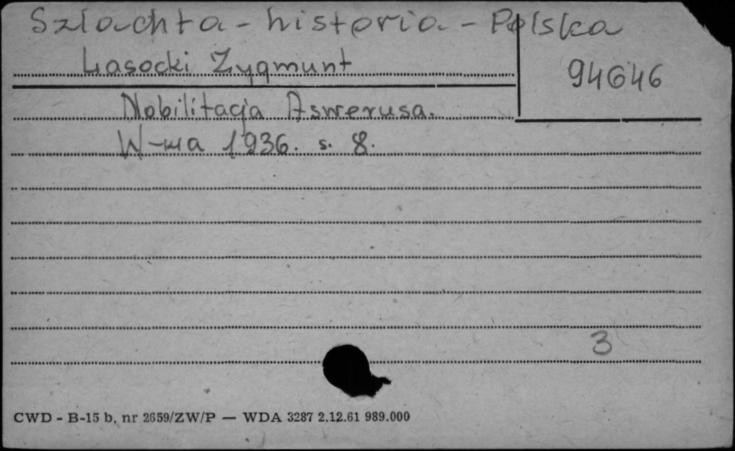 Szlachta - historia - Polska
Lasocki Zygmunt
94646
Nobilitacja Aswerusa.
W-wa 1936. s. 8.
3
CWD - B-15 b, nr 2659/ZW/P — WDA 3287 2.12.61 989.000